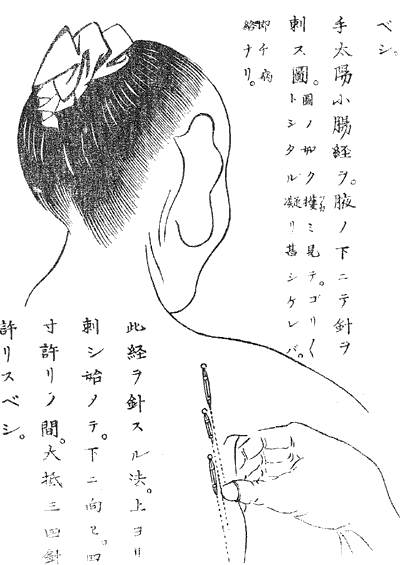 ベシ。
手太陽小腸経ヲ。腋ノ下ニテ針ヲ
刺ス圖。圖ノ如クミ見テ。ゴリ〱
トシタル凝リ甚シケレバ。
即チ病
ナリ。
此経ヲ針スル决。上ヨリ
刺シ始メテ。下ニ向ヒ。四
寸許リノ間。大抵三四針
許リスベシ。